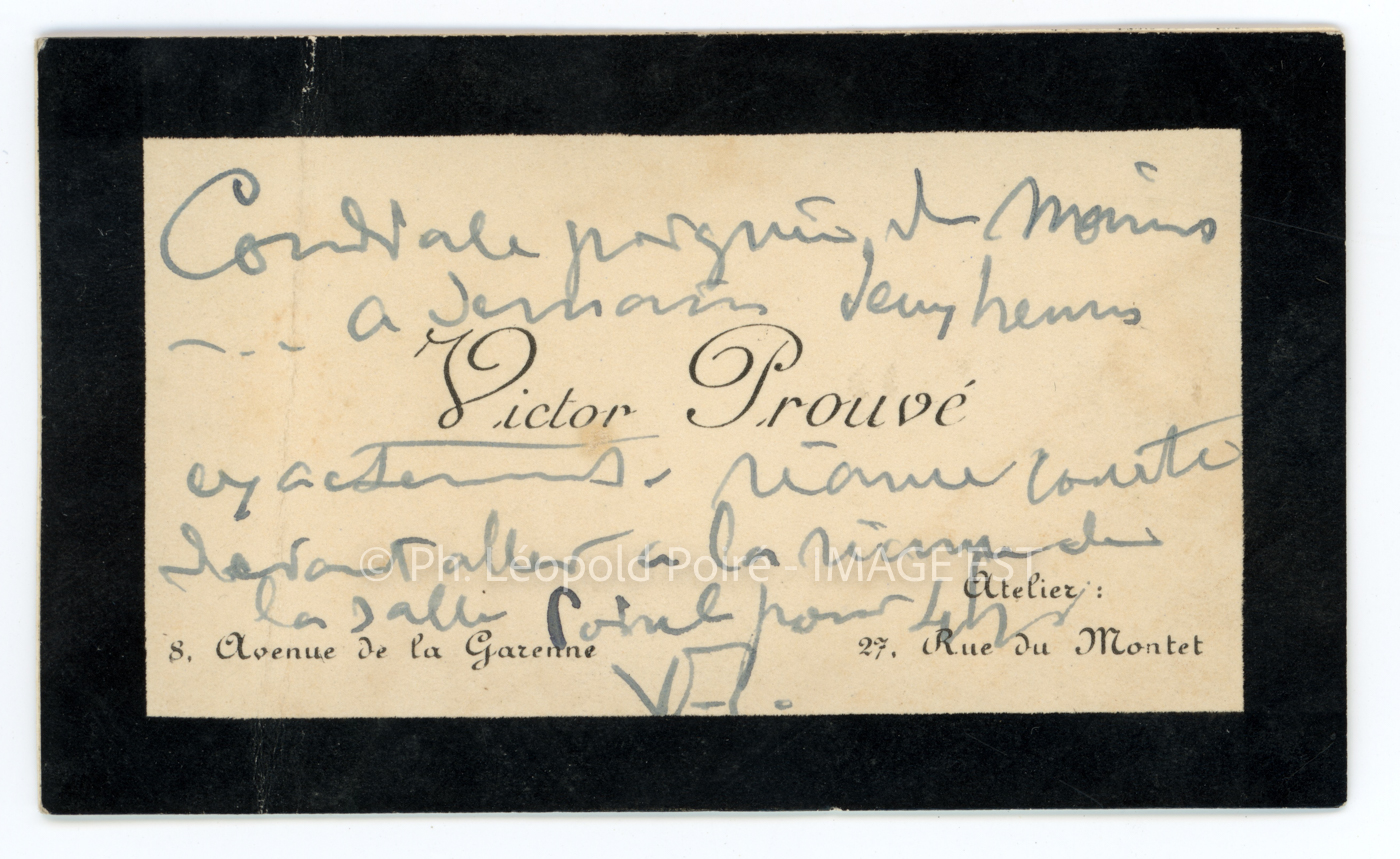 Cordiale poignée de mains
--- a demain deux heures
Victor Prouvé
exactement. séance courte
devant aller a la réunion de
© Ph. Léopold Poiré - IMAGE'EST
Atelier :
la salle Poirel pour 4h
8, Avenue de la Garenne
27, Rue du Montet
V.P.